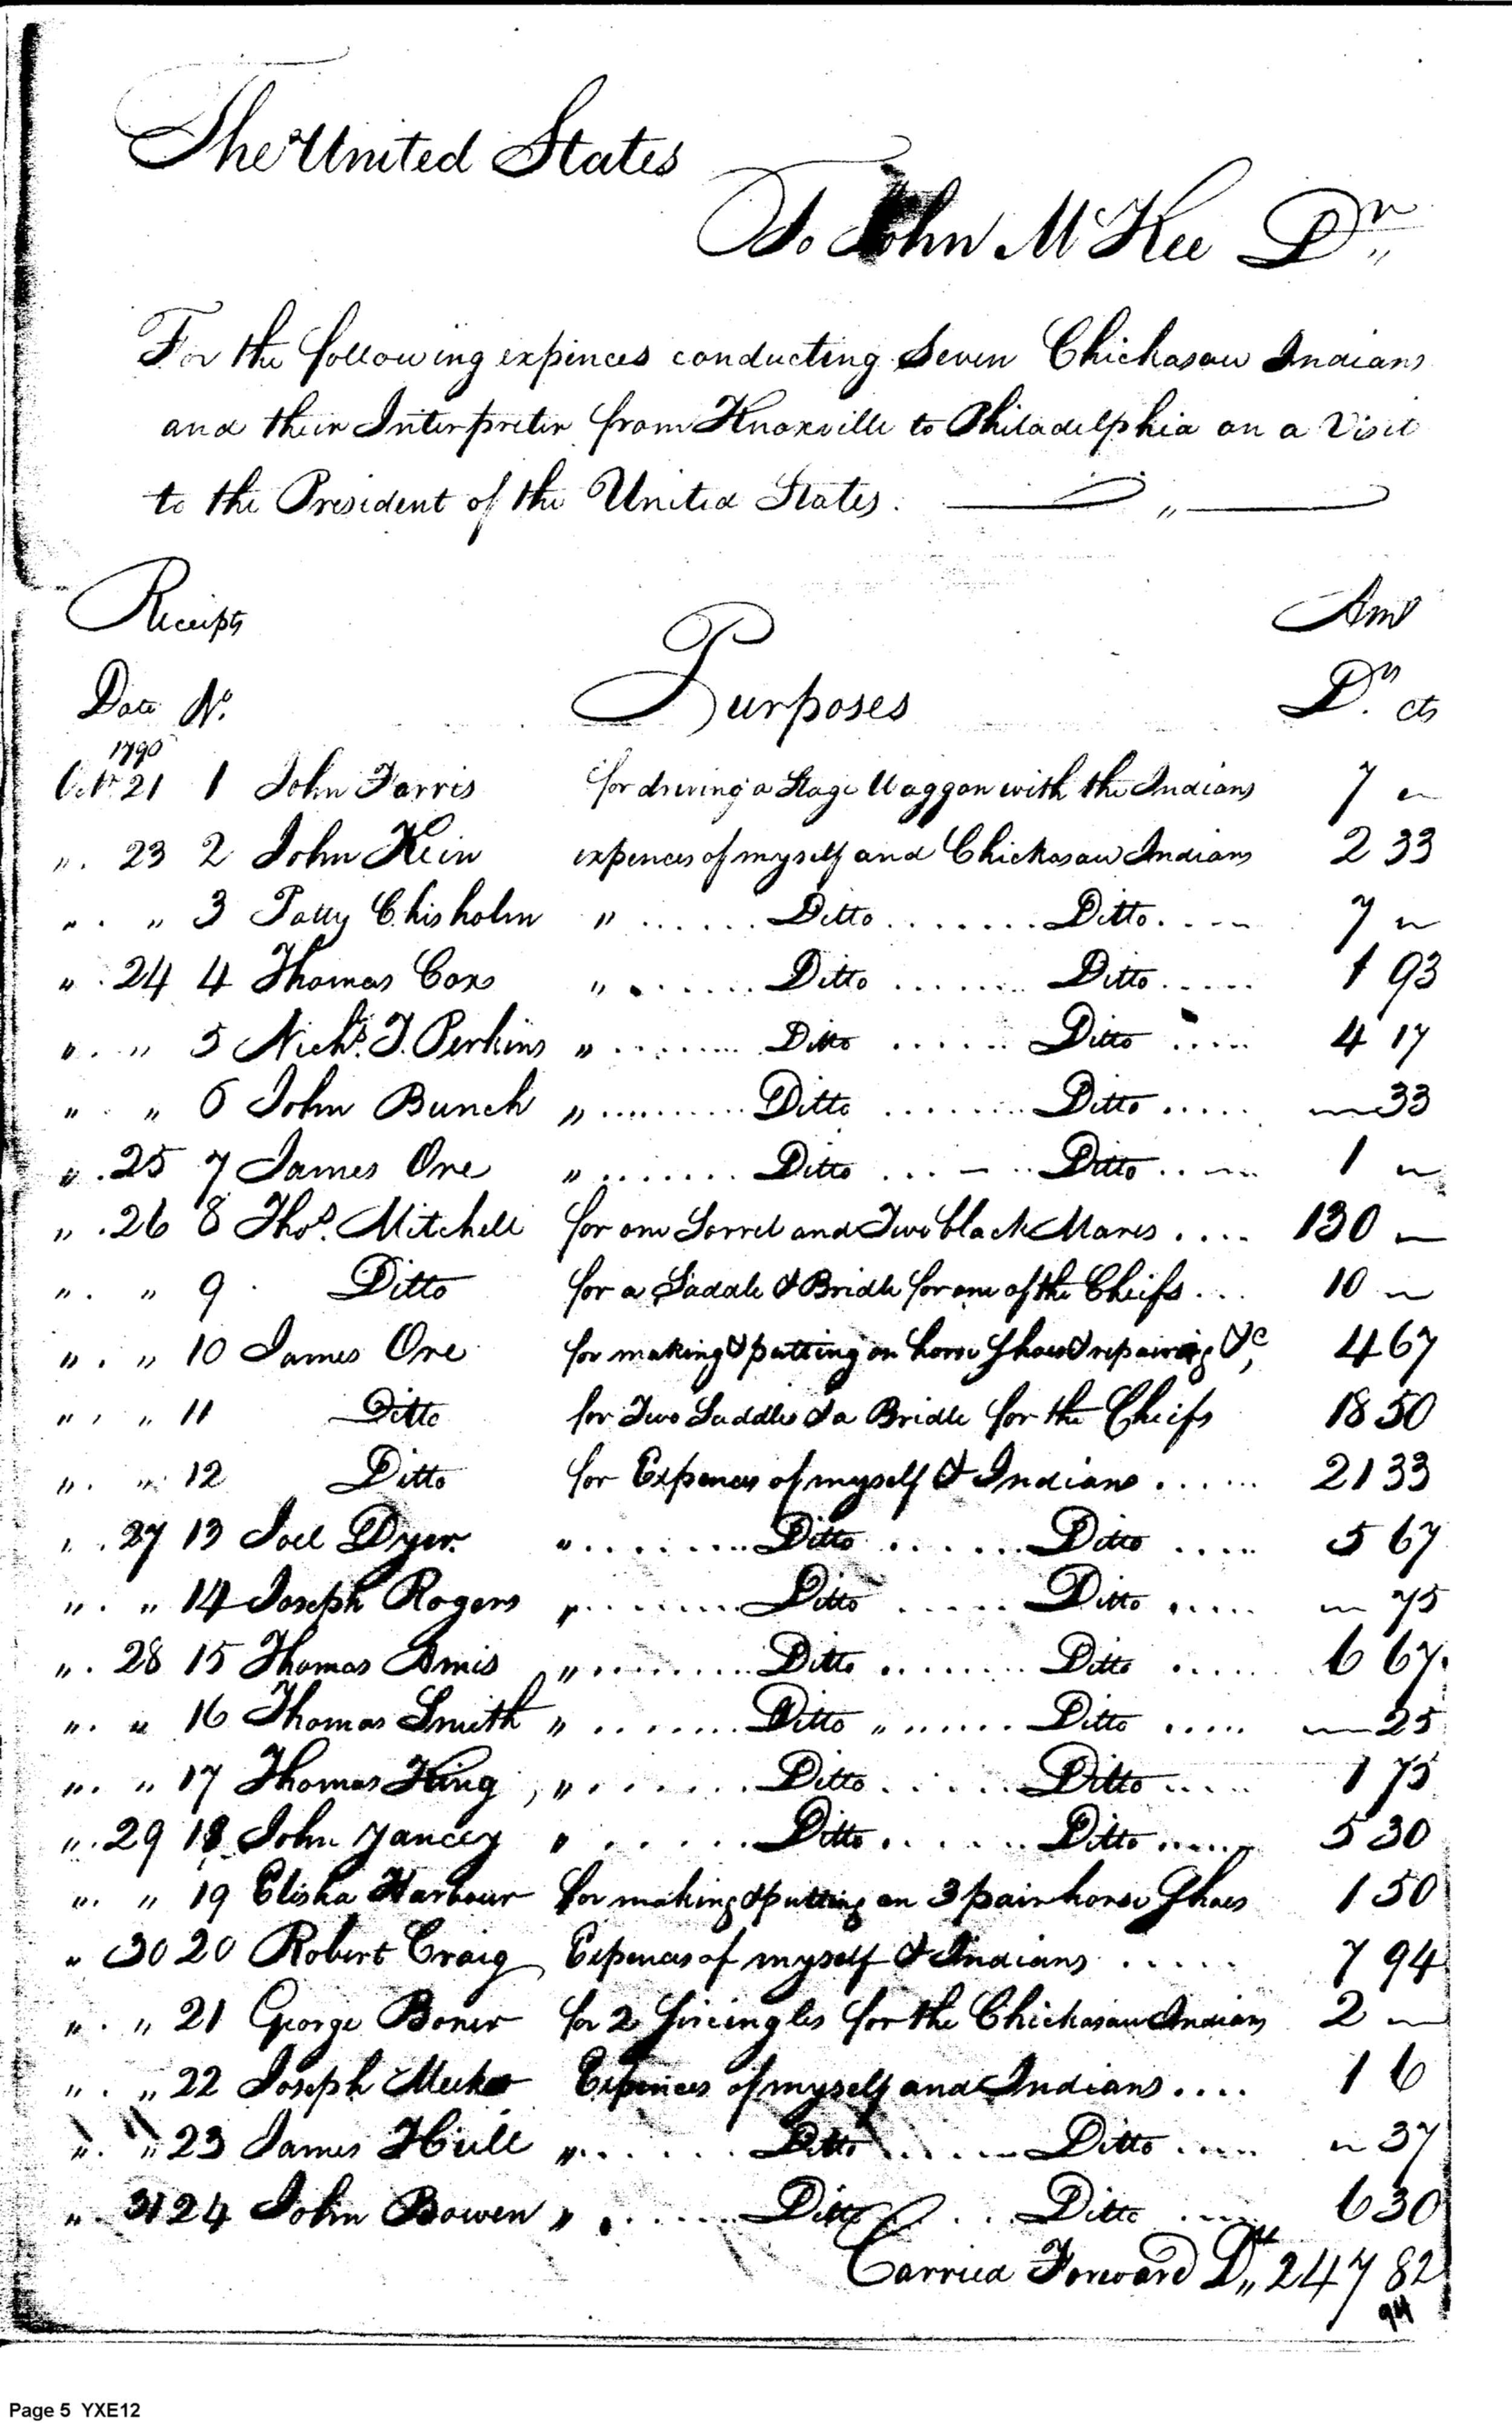 The United States
To John McKee Dr
For the following expences conducting Seven Chickasaw Indians
and their Interpreter from Knoxville to Philadelphia on a Visit
to the President of the United States. — " —
Receipts Amt
Date No. Purposes Drs. cts
1790
Octr 21 1 John Farris for driving a Stage Waggon with the Indians 7 —
" 23 2 John Kein expences of myself and Chickasaw Indians 2 33
" " 3 Patty Chisholm " Ditto Ditto 7 —
" 24 4 Thomas Cox " Ditto Ditto 1 93
" " 5 Nichs. T. Perkins " Ditto Ditto 4 17
" " 6 John Bunch " Ditto Ditto — 33
" 25 7 James Ore " Ditto Ditto 1 —
" 26 8 Thos. Mitchell for one Sorrel and Two black Mares 130 —
" " 9 Ditto for a Saddle & Bridle for one of the Cheifs 10 —
" " 10 James Ore for making & putting on horse Shoes & repairing &c, 4 67
" " 11 Ditto for Two Saddles & a Bridle for the Cheifs 18 50
" " 12 Ditto for Expences of myself & Indians 21 33
" 27 13 Joel Dyer. " Ditto Ditto 5 67
" " 14 Joseph Rogers " Ditto Ditto — 75
" 28 15 Thomas Amis " Ditto Ditto 6 67
" " 16 Thomas Smith " Ditto " Ditto — 25
" " 17 Thomas King, " Ditto Ditto 1 75
" 29 18 John Yancey " Ditto Ditto 5 30
" " 19 Elisha Harbour for making & putting on 3 pair horse Shoes 1 50
" 30 20 Robert Craig Expences of myself & Indians 7 94
" " 21 George Boner for 2 Sircingles for the Chickasaw Indians 2 —
" " 22 Joseph Expences of myself and Indians 1 6
" " 23 James Hull " Ditto Ditto — 37
" 31 24 John Bowen " Ditto Ditto 6 30
Carried Forward D" 247 82
94
Page 5 YXE12